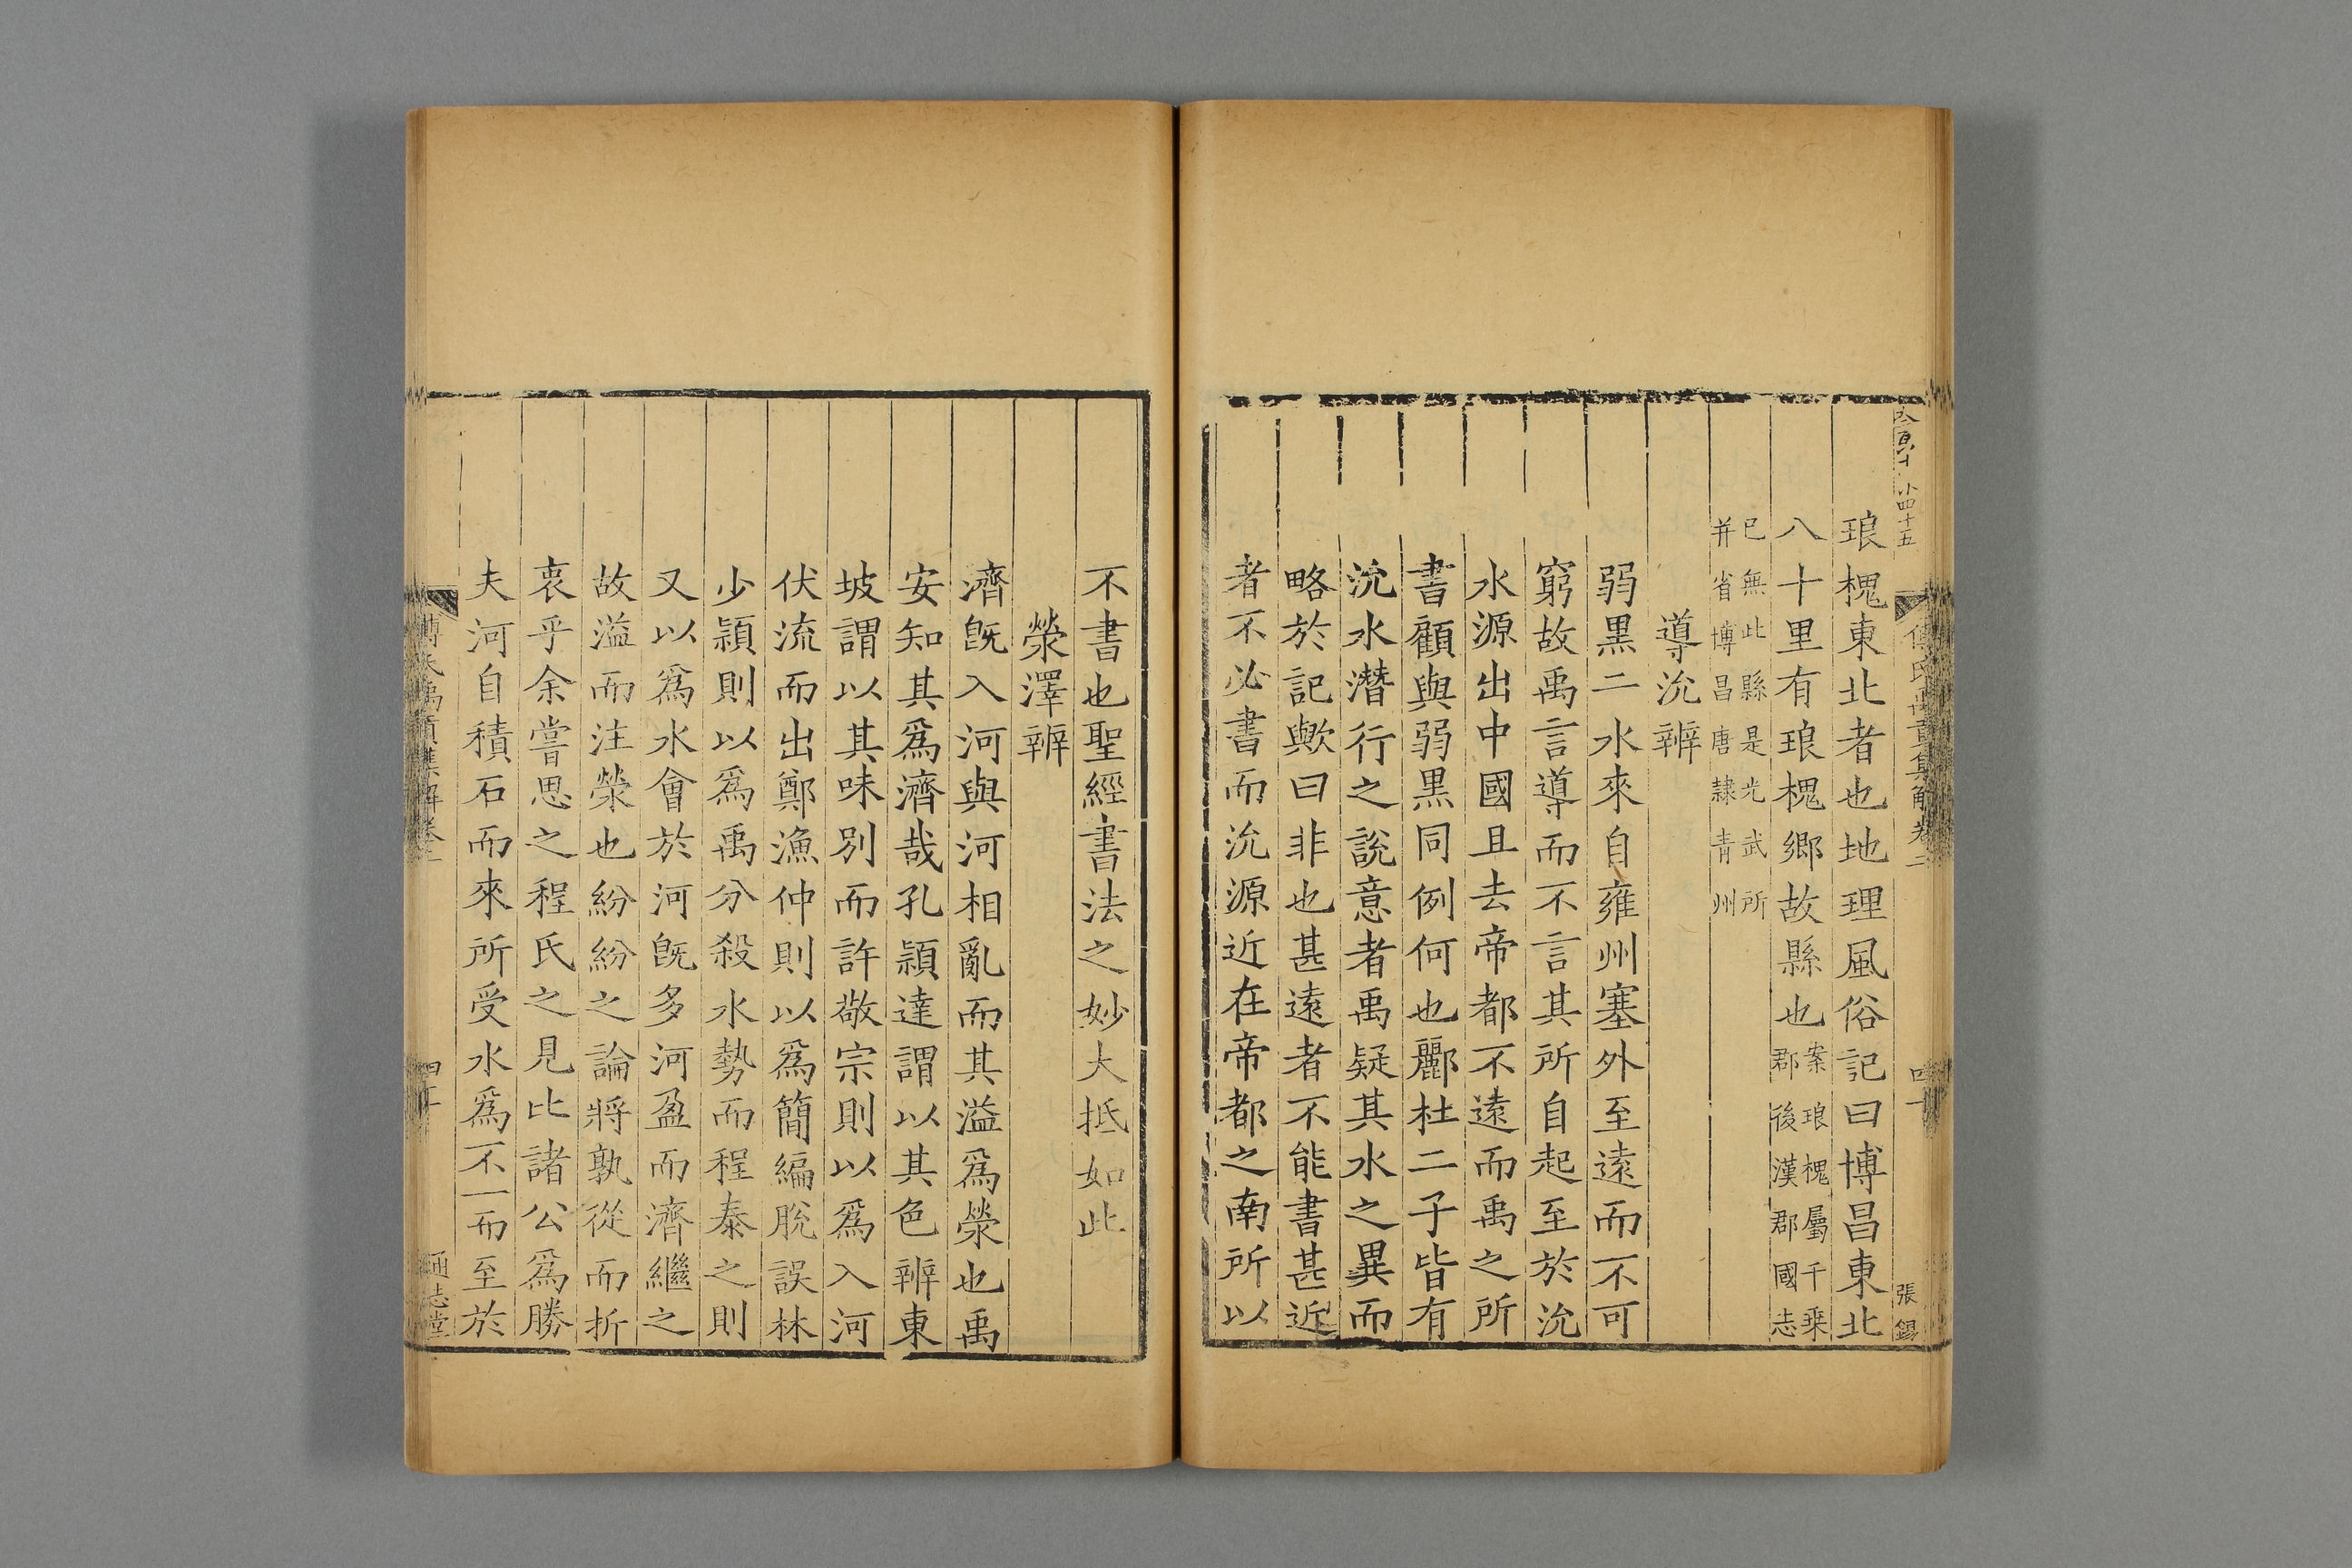 琅槐東北者也地理風俗記曰博昌東北
八十里有琅槐鄉故縣也案琅槐屬千乗郡後漢郡國志
已無此縣是光武所并省博昌唐隷青州
導沇辨
弱黒二水來自雍州塞外至逺而不可
窮故禹言導而不言其所自起至於沇
水源出中國且去帝都不逺而禹之所
書顧與弱黒同例何也酈杜二子皆有
沇水潛行之說意者禹疑其水之異而
略於記歟曰非也甚逺者不能書甚近
者不必書而沇源近在帝都之南所以
不書也聖經書法之妙大抵如此
滎澤辨
濟旣入河與河相亂而其溢爲滎也禹
安知其爲濟哉孔頴達謂以其色辨東
坡謂以其味別而許敬宗則以爲入河
伏流而出鄭漁仲則以爲簡編脫誤林
少頴則以爲禹分殺水勢而程泰之則
又以爲水會於河旣多河盈而濟繼之
故溢而注滎也紛紛之論將孰從而折
衷乎余嘗思之程氏之見比諸公爲勝
夫河自積石而來所受水爲不一而至於
通志堂